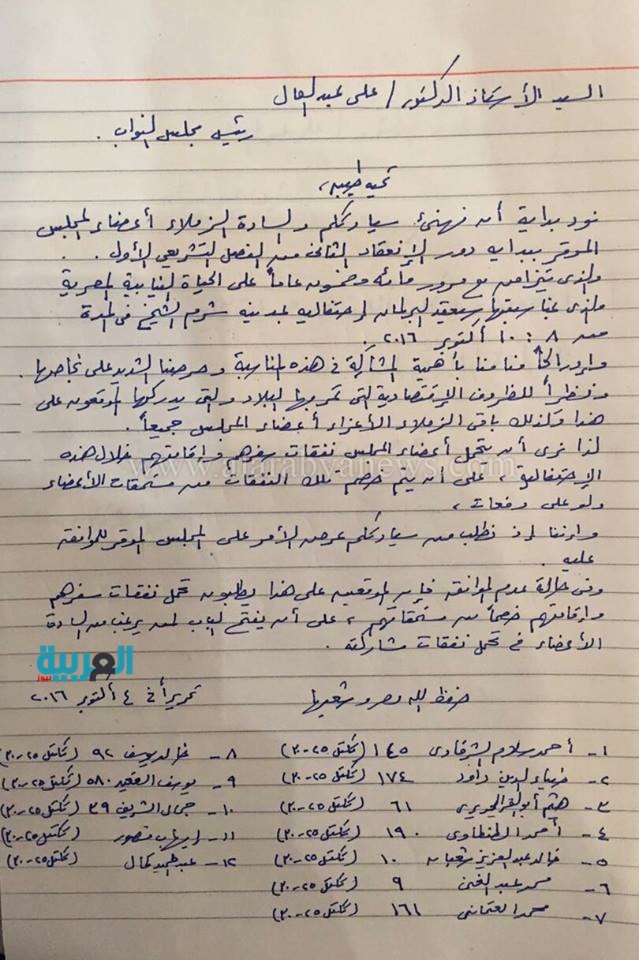 السيد الأستاذ الدكتور / على عبد العال
رئيس مجلس النواب .
تحية طيبة ،
نود بداية أن نهنئ سيادتكم والسادة الزملاء أعضاء المجلس
الموقر ببداية دور الإنعقاد الثانى من الفصل التشريعى الأول .
والذى يتزامن مع مرور مائة وخمسون عاماً على الحياة النيابية المصرية
والذى بمناسبتها سيعقد البرلمان إحتفالية بمدينة شرم الشيخ فى المدة
من ٨ : ١٠ أكتوبر ٢٠١٦ .
وإدراكاً منا بأهمية المشاركة فى هذه المناسبة وحرصنا الشديد على نجاحها .
ونظراً للظروف الإقتصادية التى تمر بها البلاد والتى يدركها الموقعون على
هذا وكذلك باقى الزملاء الأعزاء أعضاء المجلس جميعاً .
لذا نرى أن يتحمل أعضاء المجلس نفقات سفرهم وإقامتهم خلال هذه
الإحتفالية ، على أن يتم خصم تلك النفقات من مستحقات الأعضاء
ولو على دفعات ،
وإننا إذ نطلب من سيادتكم عرض الأمر على المجلس الموقر للموافقة
عليه .
وفى حالة عدم الموافقة فإن الموقعين على هذا يطلبون تحمل نفقات سفرهم
وإقامتهم خصماً من مستحقاتهم ، على أن يفتح الباب لمن يرغب من السادة
الأعضاء فى تحمل نفقات مشاركته .
حفظ الله مصر وشعبها
تحريراً فى ٤ أكتوبر ٢٠١٦
١- أحمد سلام الشرقاوى ١٤٥ (تكتل ٢٥-٣٠)
٢- ضياء الدين داود ١٧٤ (تكتل ٢٥-٣٠)
٣- هيثم أبو العز الحريرى ٦١ (تكتل ٢٥-٣٠)
٤- أحمد الطنطاوى ١٩٠ (تكتل ٢٥-٣٠)
٥- خالد عبد العزيز شعبان ١٠ (تكتل ٢٥-٣٠)
٦- محمد عبد الغنى ٩ (تكتل ٢٥-٣٠)
٧- محمد العتمانى ١٦١ (تكتل ٢٥-٣٠)
٨- خالد يوسف ٩٢ (تكتل ٢٥-٣٠)
٩- يوسف القعيد ٥٨٠ (تكتل ٢٥-٣٠)
١٠- جمال الشريف ٣٩ (تكتل ٢٥-٣٠)
١١- إيهاب منصور (تكتل ٢٥-٣٠)
١٢- عبد الحميد كمال (تكتل ٢٥-٣٠)
العربية نيوز
www.alarabyanews.com